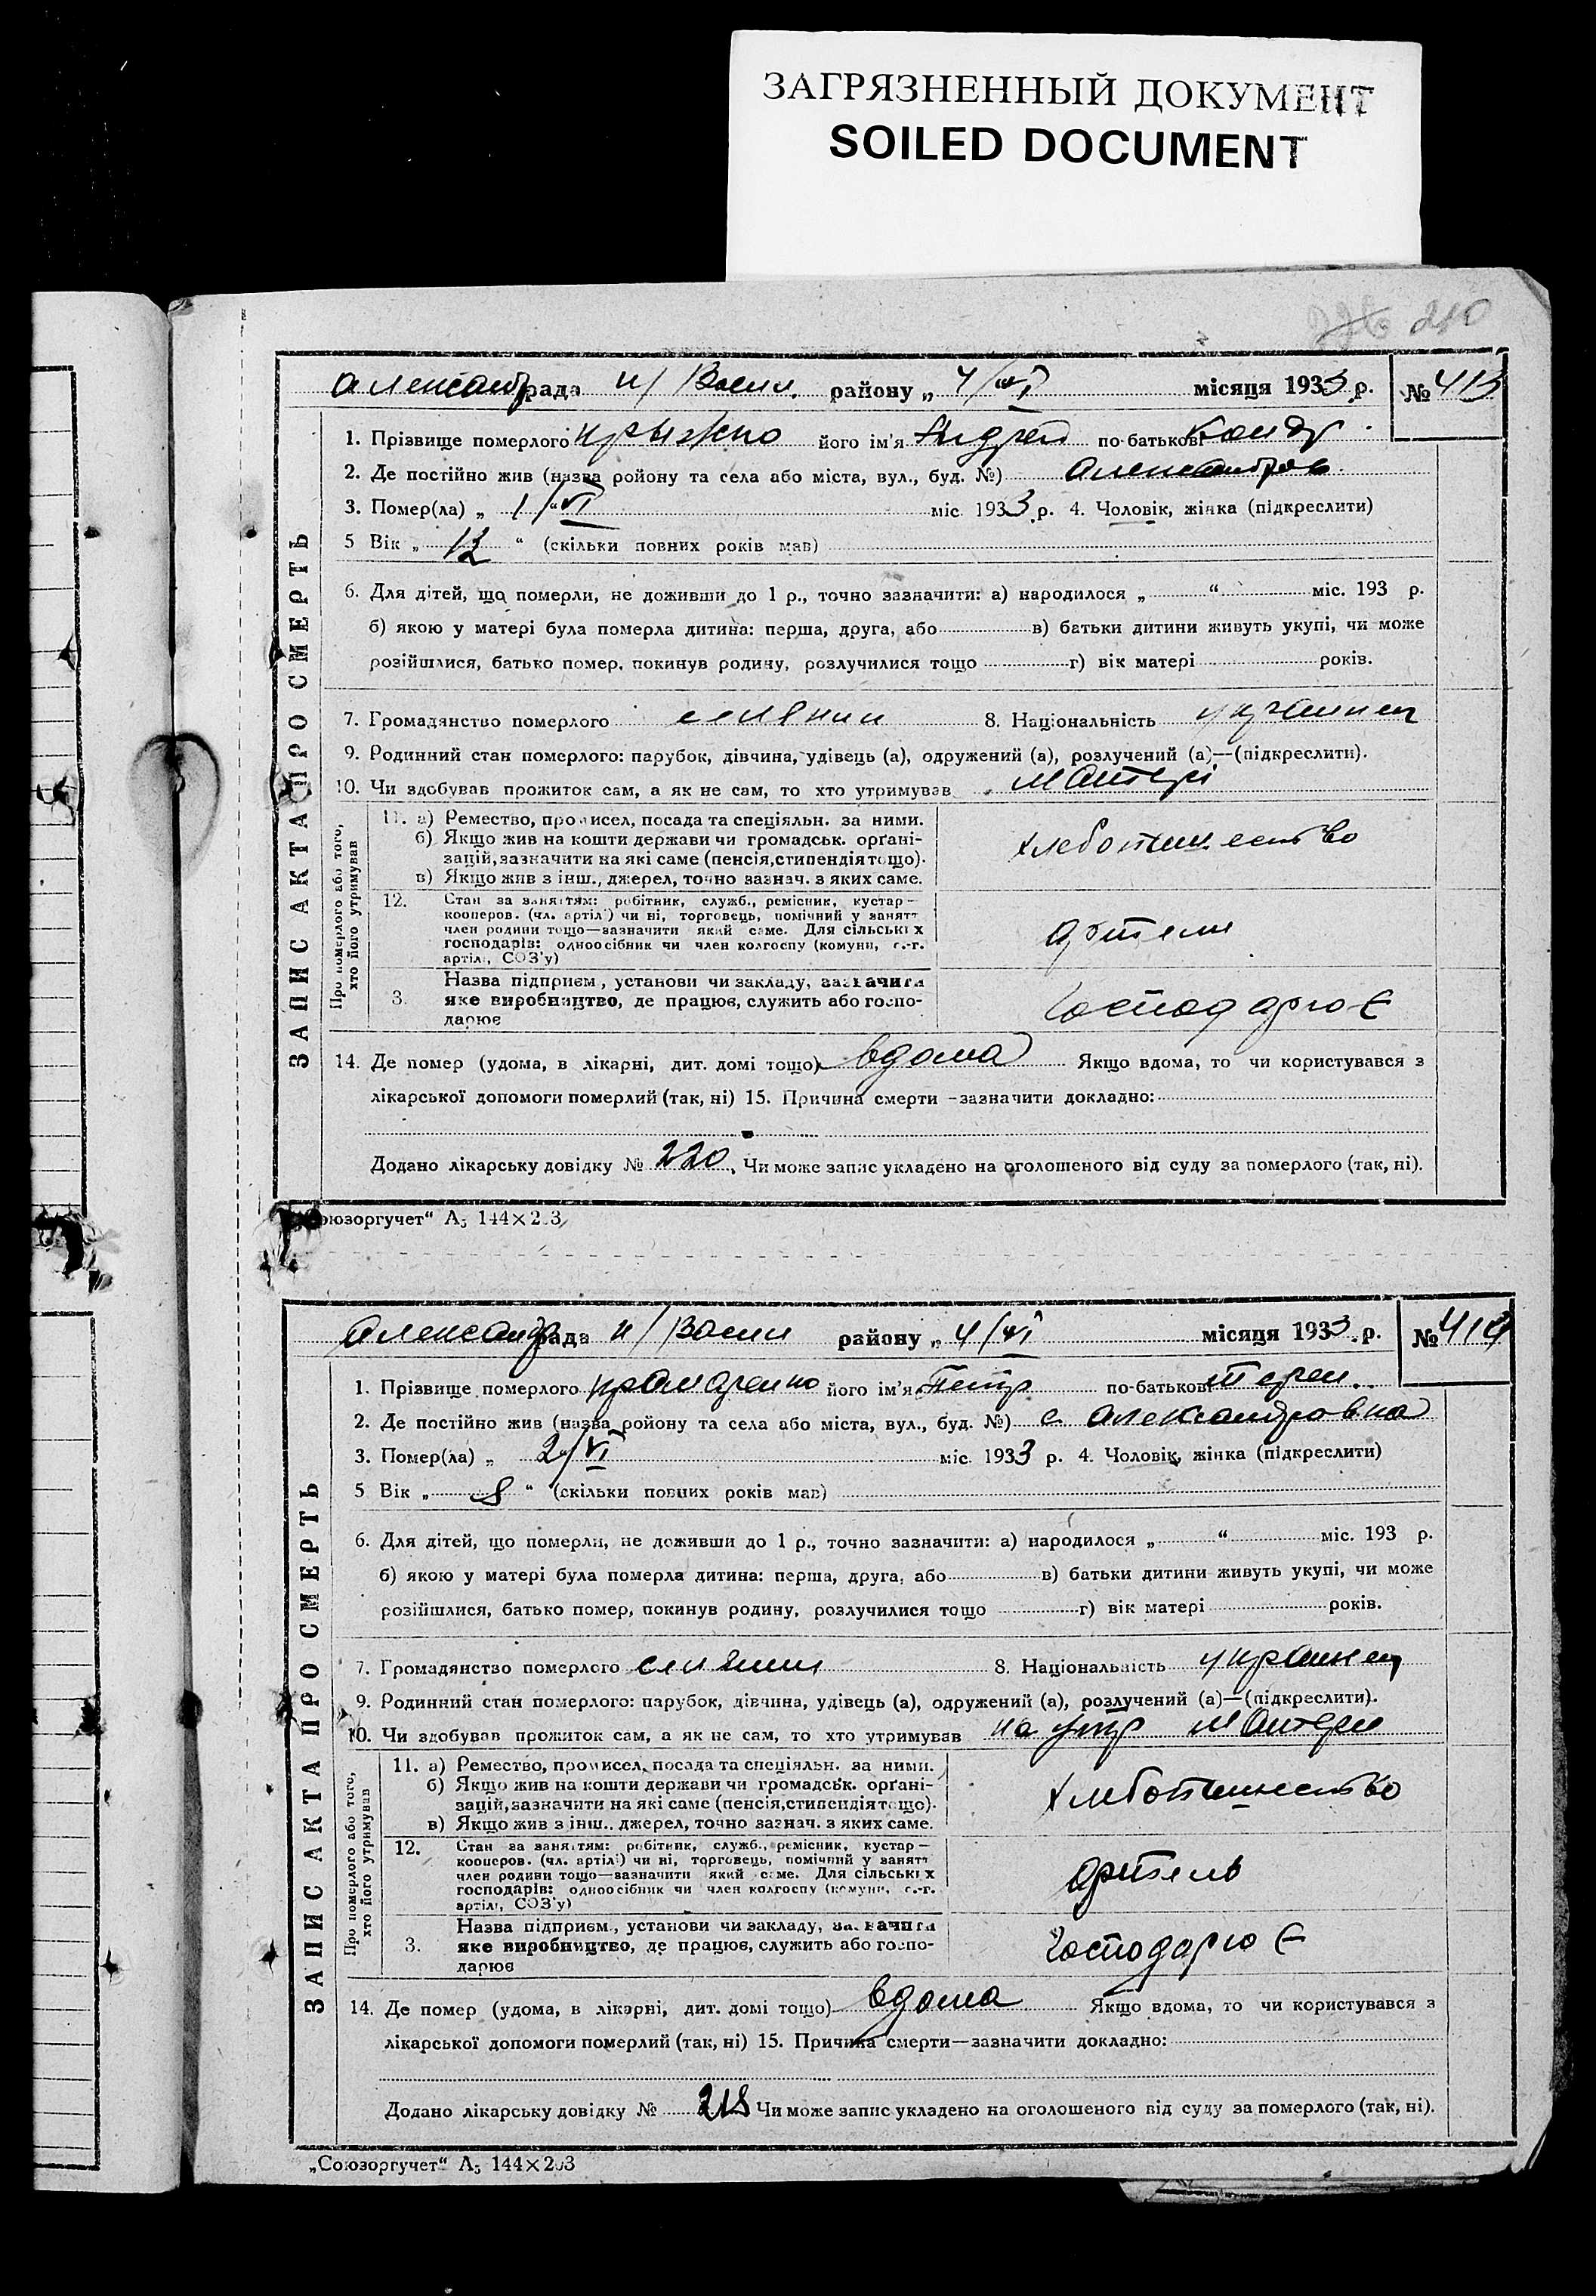 ЗАГРЯЗНЕННЫЙ ДОКУМЕНТ
SOILED DOCUMENT
210
Александр рада н/Васил. району „ 4/VI місяця 1933 р. № 413
1. Прізвище померлого його ім'я Андрей по-батькові Кондр.
2. Де постійно жив (назва ройону та села або міста, вул., буд. №) Александров.
3. Помер(ла) „ 1/“ VI міс. 1933 р. 4. Чоловік, жінка (підкреслити)
5 Вік „ 12 “ (скільки повних років мав)
6. Для дітей, що померли, не доживши до 1 р., точно зазначити: а) народилося „ “ міс. 193 р.
б) якою у матері була померла дитина: перша, друга, або в) батьки дитини живуть укупі, чи може
розійшлися, батько помер, покинув родину, розлучилися тощо г) вік матері років.
7. Громадянство померлого селянин 8. Національність украинец
9. Родинний стан померлого: парубок, дівчина, удівець (а), одружений (а), розлучений (а)—(підкреслити).
10. Чи здобував прожиток сам, а як не сам, то хто утримував матері
11. а) Ремество, промисел, посада та спеціяльн. за ними.
б) Якщо жив на кошти держави чи громадськ. орґані-
зацій, зазначити на які саме (пенсія, стипендія тощо).
в) Якщо жив з інш., джерел, точно зазнач. з яких саме.
хлебопашество
12. Стан за заняттям: робітник, служб., ремісник, кустар—
кооперов. (чл. артілі) чи ні, торговець, помічний у занятт
член родини тощо—зазначити який саме. Для сільських
господарів: одноосібник чи член колгоспу (комуни, с.-г.
артілі, СОЗ'у)
артели
3. Назва підприєм., установи чи закладу, зазначити
яке виробництво, де працює, служить або госпо-
дарює
господарює
14. Де помер (удома, в лікарні, дит. домі тощо) вдома Якщо вдома, то чи користувався з
лікарської допомоги померлий (так, ні) 15. Причина смерти—зазначити докладно:
Додано лікарську довідку № 220. Чи може запис укладено на оголошеного від суду за померлого (так, ні).
ЗАПИС АКТА ПРО СМЕРТЬ
Про померлого або того,
хто його утримував
оюзоргучет“ А5 144×203
Александр рада н/Васил району „ 4/VI місяця 1933 р. № 414
1. Прізвище померлого Крамаренко його ім'я Петр по-батькові Терен.
2. Де постійно жив (назва ройону та села або міста, вул., буд. №) с. Александровка
3. Помер(ла) „ 2/VI міс. 1933 р. 4. Чоловік, жінка (підкреслити)
5 Вік „ 8 “ (скільки повних років мав)
6. Для дітей, що померли, не доживши до 1 р., точно зазначити: а) народилося „ “ міс. 193 р.
б) якою у матері була померла дитина: перша, друга, або в) батьки дитини живуть укупі, чи може
розійшлися, батько помер, покинув родину, розлучилися тощо г) вік матері років.
7. Громадянство померлого селянин 8. Національність украинец
9. Родинний стан померлого: парубок, дівчина, удівець (а), одружений (а), розлучений (а)—(підкреслити).
10. Чи здобував прожиток сам, а як не сам, то хто утримував на утр матери
11. а) Ремество, промисел, посада та спеціяльн. за ними.
б) Якщо жив на кошти держави чи громадськ. орґані-
зацій, зазначити на які саме (пенсія, стипендія тощо).
в) Якщо жив з інш.. джерел, точно зазнач. з яких саме.
хлебопашество
12. Стан за заняттям: робітник, служб., ремісник, кустар—
кооперов. (чл. артілі) чи ні, торговець, помічний у занятт
член родини тощо—зазначити який саме. Для сільських
господарів: одноосібник чи член колгоспу (комуни, с.-г.
артілі, СОЗ'у)
артель
3. Назва підприєм., установи чи закладу, зазначити
яке виробництво, де працює, служить або госпо-
дарює
господарює
14. Де помер (удома, в лікарні, дит. домі тощо) вдома Якщо вдома, то чи користувався з
лікарської допомоги померлий (так, ні) 15. Причина смерти—зазначити докладно:
Додано лікарську довідку № 218 Чи може запис укладено на оголошеного від суду за померлого (так, ні).
ЗАПИС АКТА ПРО СМЕРТЬ
Про померлого або того,
хто його утримував
„Союзоргучет“ А5 144×203